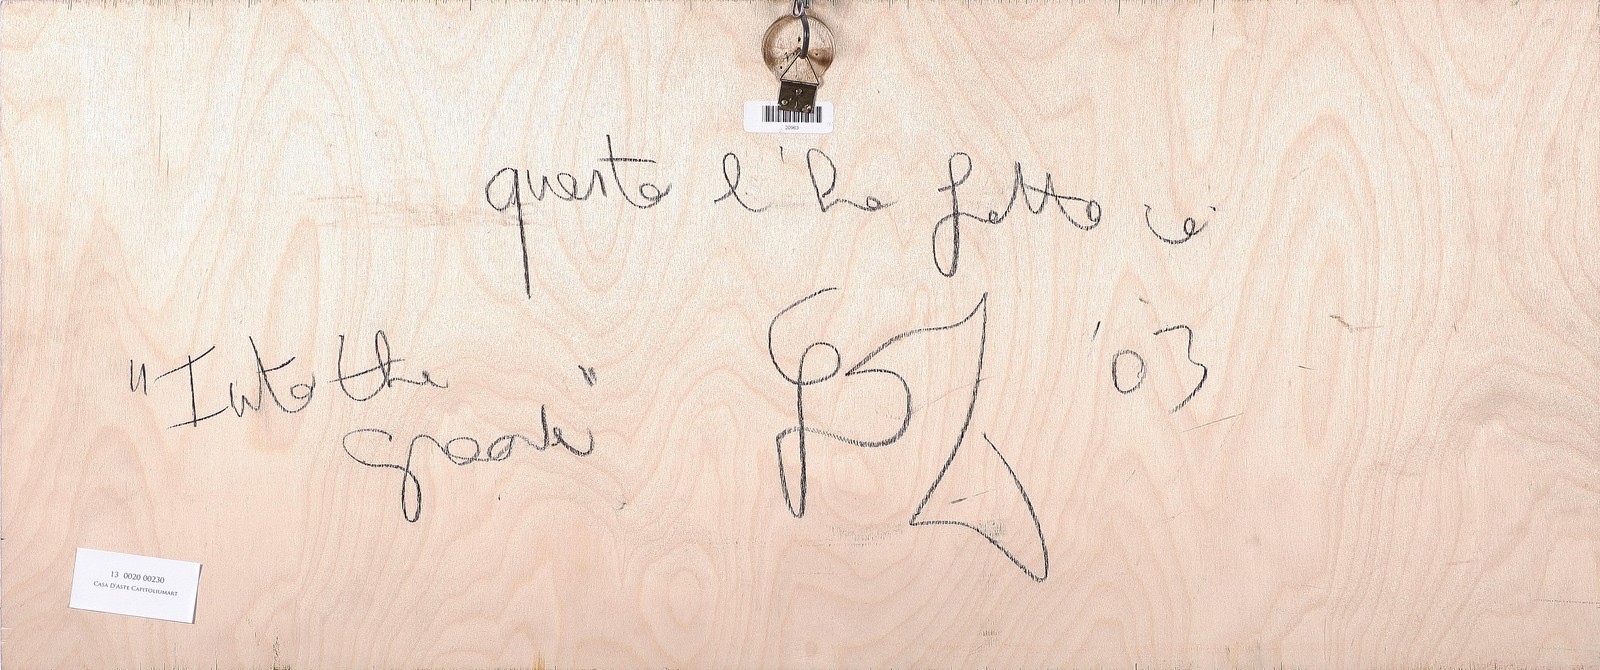 20963
questo l'ho fatto io
"Into the
groove"
'03
13 0020 00230
CASA D'ASTE CAPITOLIUMART